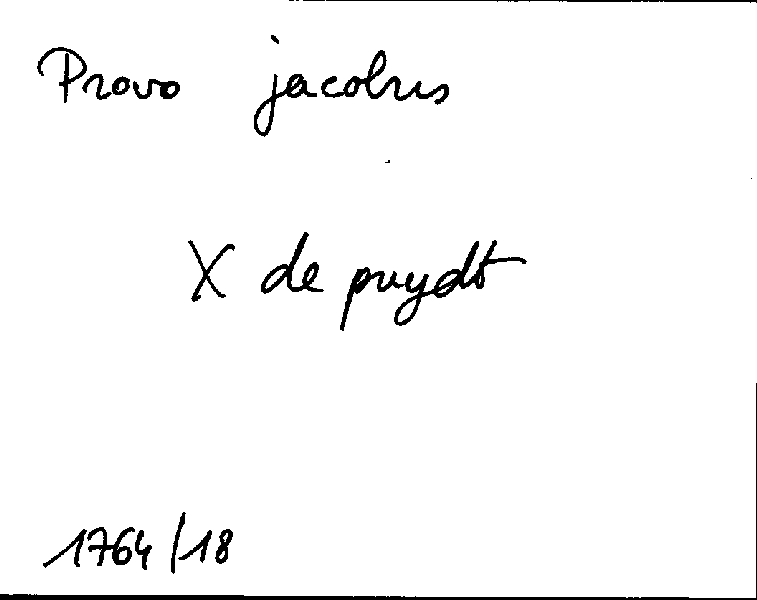 Provo jacobus
X de puydt
1764/18